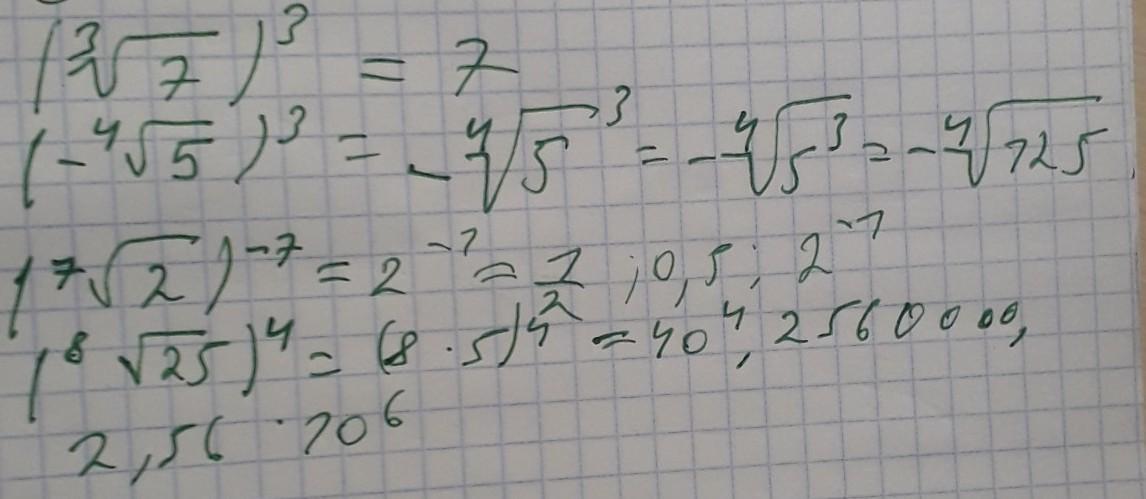 (∛7)³ = 7
(-⁴√5)³ = -⁴√5³ = -⁴√5³ = -⁴√125
(⁷√2)⁻⁷ = 2⁻¹ = 1/2 ; 0,5 ; 2⁻¹
(⁸√25)⁴ = (8 · 5)⁴ = 40⁴, 2560000,
2,56 · 10⁶